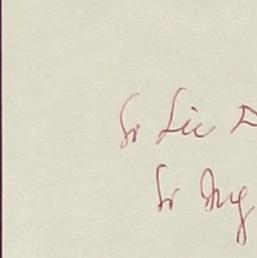 Sr Lic
Sr Ing